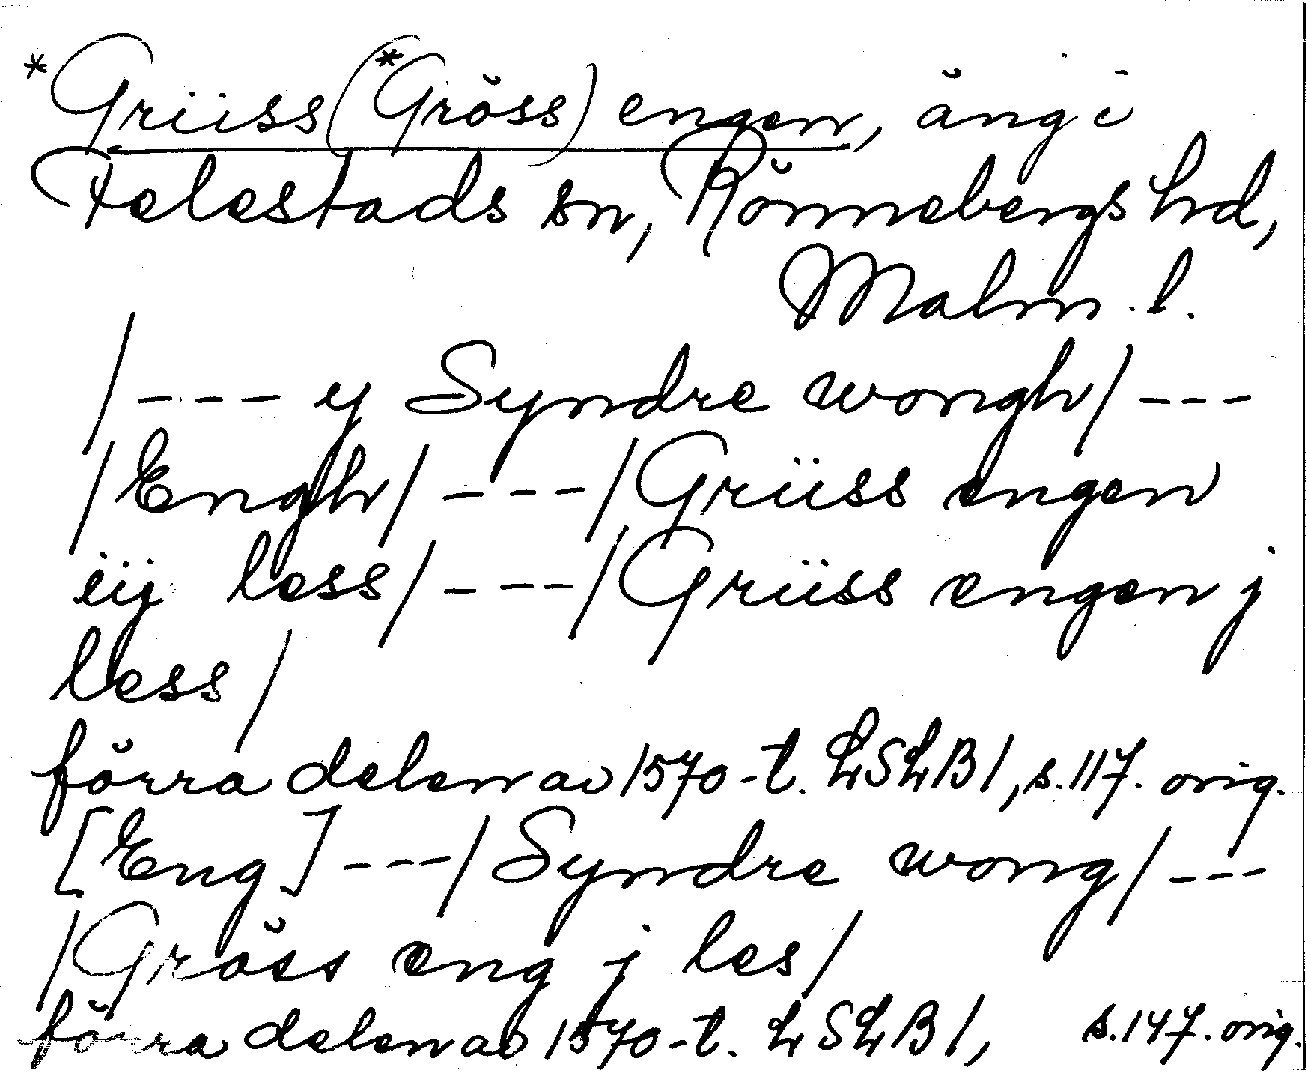 *Grüss(*Gröss)engen, äng i
Felestads sn, Rönnebergs hd,
Malm. l.
/--- y Syndre wongh/---
/Engh/---/Grüss engen
iij less/---/Grüss engen j
less/
förra delen av 1570-t. LSLB1, s.117. orig.
[Eng]---/Syndre wong/---
/Gröss eng j les/
förra delen av 1570-t. LSLB1, s.147. orig.